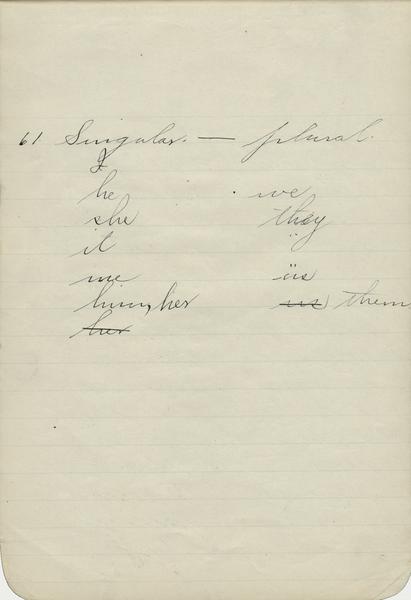 61 Singular. — plural.
I
he we
she they
it
me us
him, her us them
her